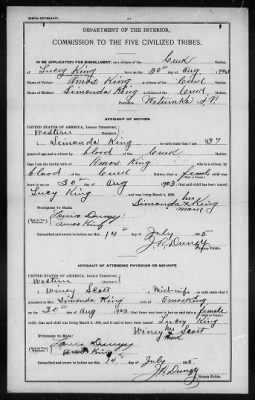 BIRTH AFFIDAVIT.
DEPARTMENT OF THE INTERIOR,
COMMISSION TO THE FIVE CIVILIZED TRIBES.
IN RE APPLICATION FOR ENROLLMENT, as a citizen of the Creek Nation,
of Lucey King, born on the 30th day of Aug, 1903
Name of Father: Amos King, a citizen of the Creek Nation.
Name of Mother: Simonda King, a citizen of the Creek Nation.
Postoffice Wetumka I.T.
AFFIDAVIT OF MOTHER
UNITED STATES OF AMERICA, INDIAN TERRITORY,
Western District.
I, Simonda King, on oath state that I am
years of age and a citizen by blood, of the Creek Nation;
that I am the lawful wife of Amos King, who is a citizen, by
blood of the Creek Nation; that a female child was
born to me on 30 day of Aug, 1903, that said child has been named
Lucey King, and was living March 4, 1905.
Simonda x King
her
mark
WITNESSES TO MARK:
Louis Dungy
Amos King
Subscribed and sworn to before me this 14th day of July, 1905.
J. R. Dungy
Notary Public.
AFFIDAVIT OF ATTENDING PHYSICIAN OR MID-WIFE.
UNITED STATES OF AMERICA, INDIAN TERRITORY,
Western District.
I, Winey Scott, a Mid-wife, on oath state that I
attended on Mrs. Simonda King, wife of Amos King
on the 30 day of Aug, 1903, that there was born to her on said date a female
child; that said child was living March 4, 1905, and is said to have been named Lucey King
Winey x Scott
her
mark
WITNESSES TO MARK:
Louis Dungy
Amos King
Subscribed and sworn to before me this 14th day of July, 1905.
J. R. Dungy
Notary Public.